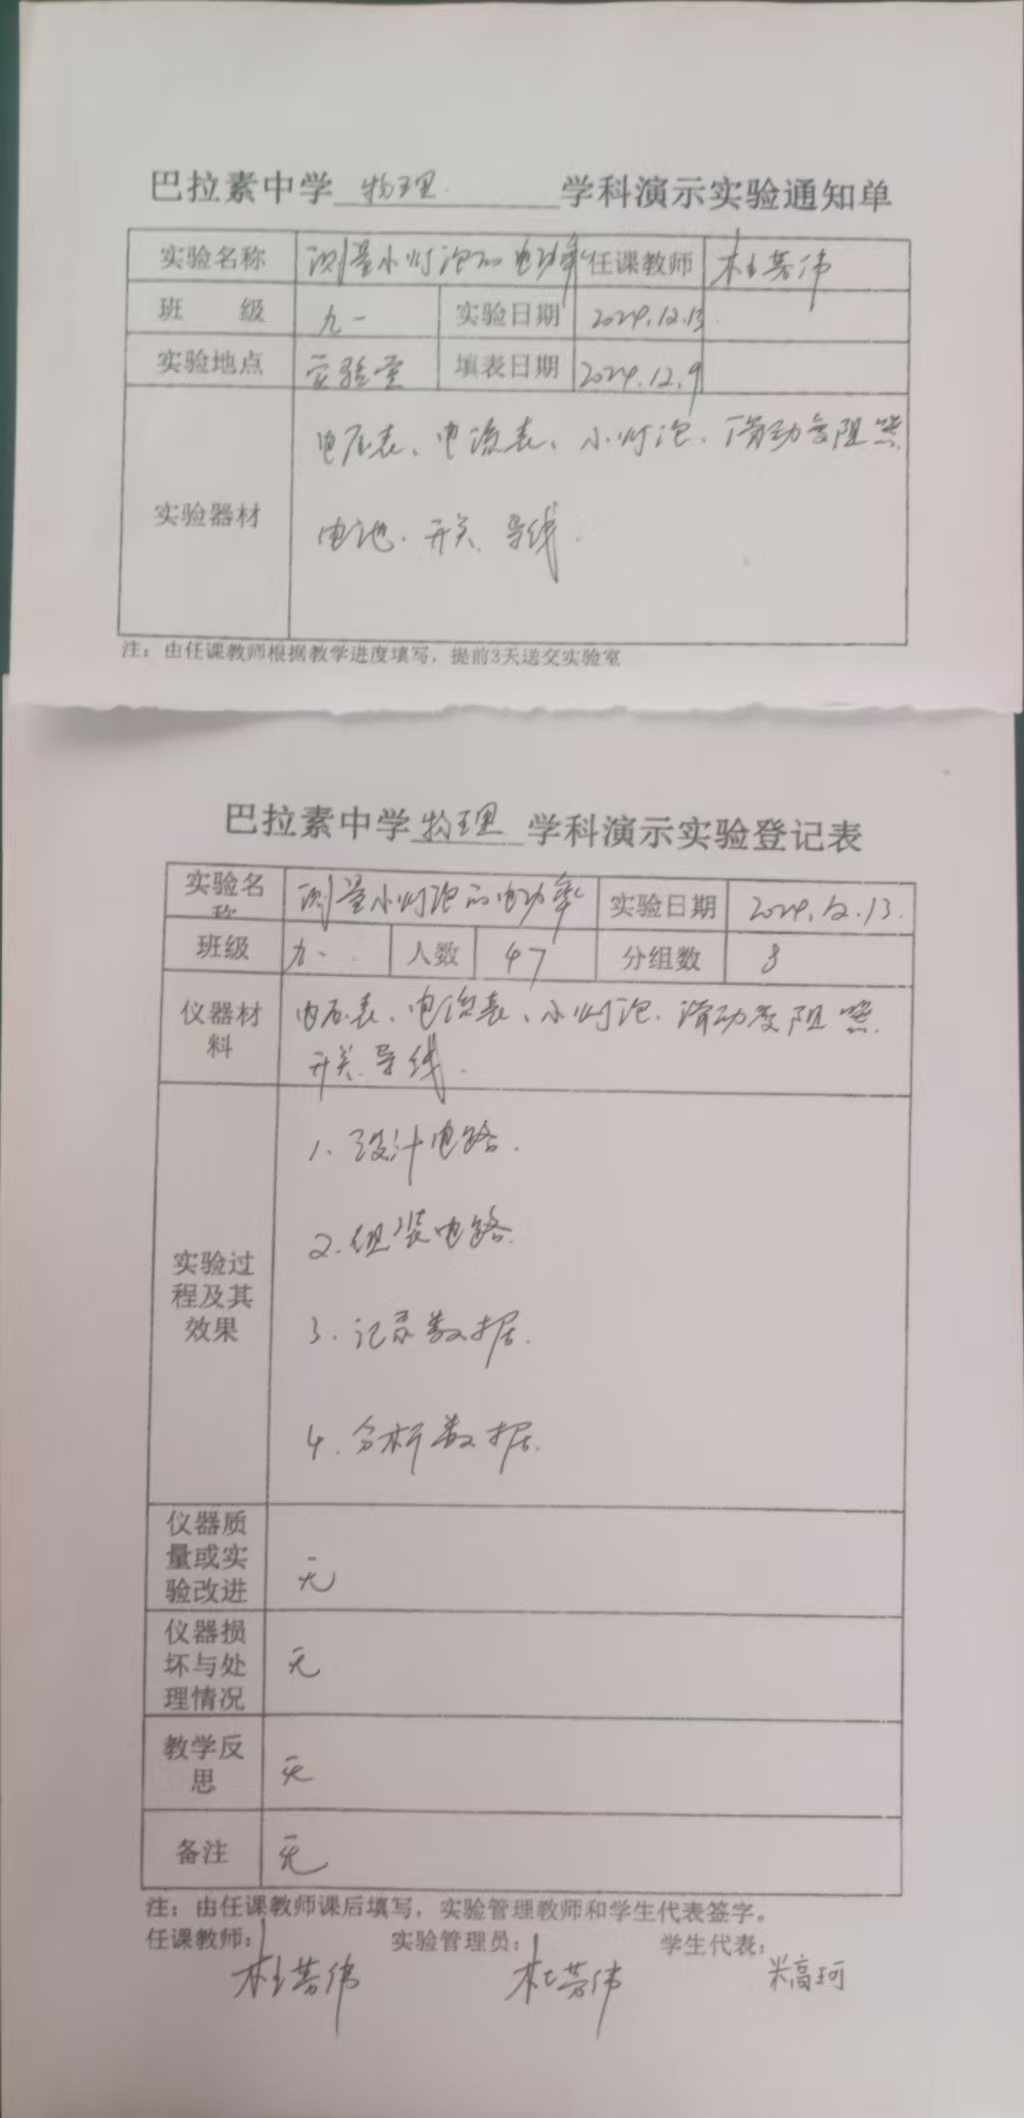 巴拉素中学 物理 学科演示实验通知单
实验名称 测量小灯泡的电功率 任课教师 杜芳伟
班 级 九一 实验日期 2024.12.13.
实验地点 实验室 填表日期 2024.12.9
实验器材 电压表、电流表、小灯泡、滑动变阻器
电池、开关、导线.
注：由任课教师根据教学进度填写，提前3天送交实验室
巴拉素中学 物理 学科演示实验登记表
实验名称 测量小灯泡的电功率 实验日期 2024.12.13.
班级 九一. 人数 47 分组数 8
仪器材料 电压表、电流表、小灯泡、滑动变阻器.
开关、导线.
实验过程及其效果
1、设计电路.
2.组装电路.
3.记录数据.
4.分析数据.
仪器质量或实验改进 无
仪器损坏与处理情况 无
教学反思 无
备注 无
注：由任课教师课后填写，实验管理教师和学生代表签字。
任课教师： 实验管理员： 学生代表：
杜芳伟 杜芳伟 米高珂